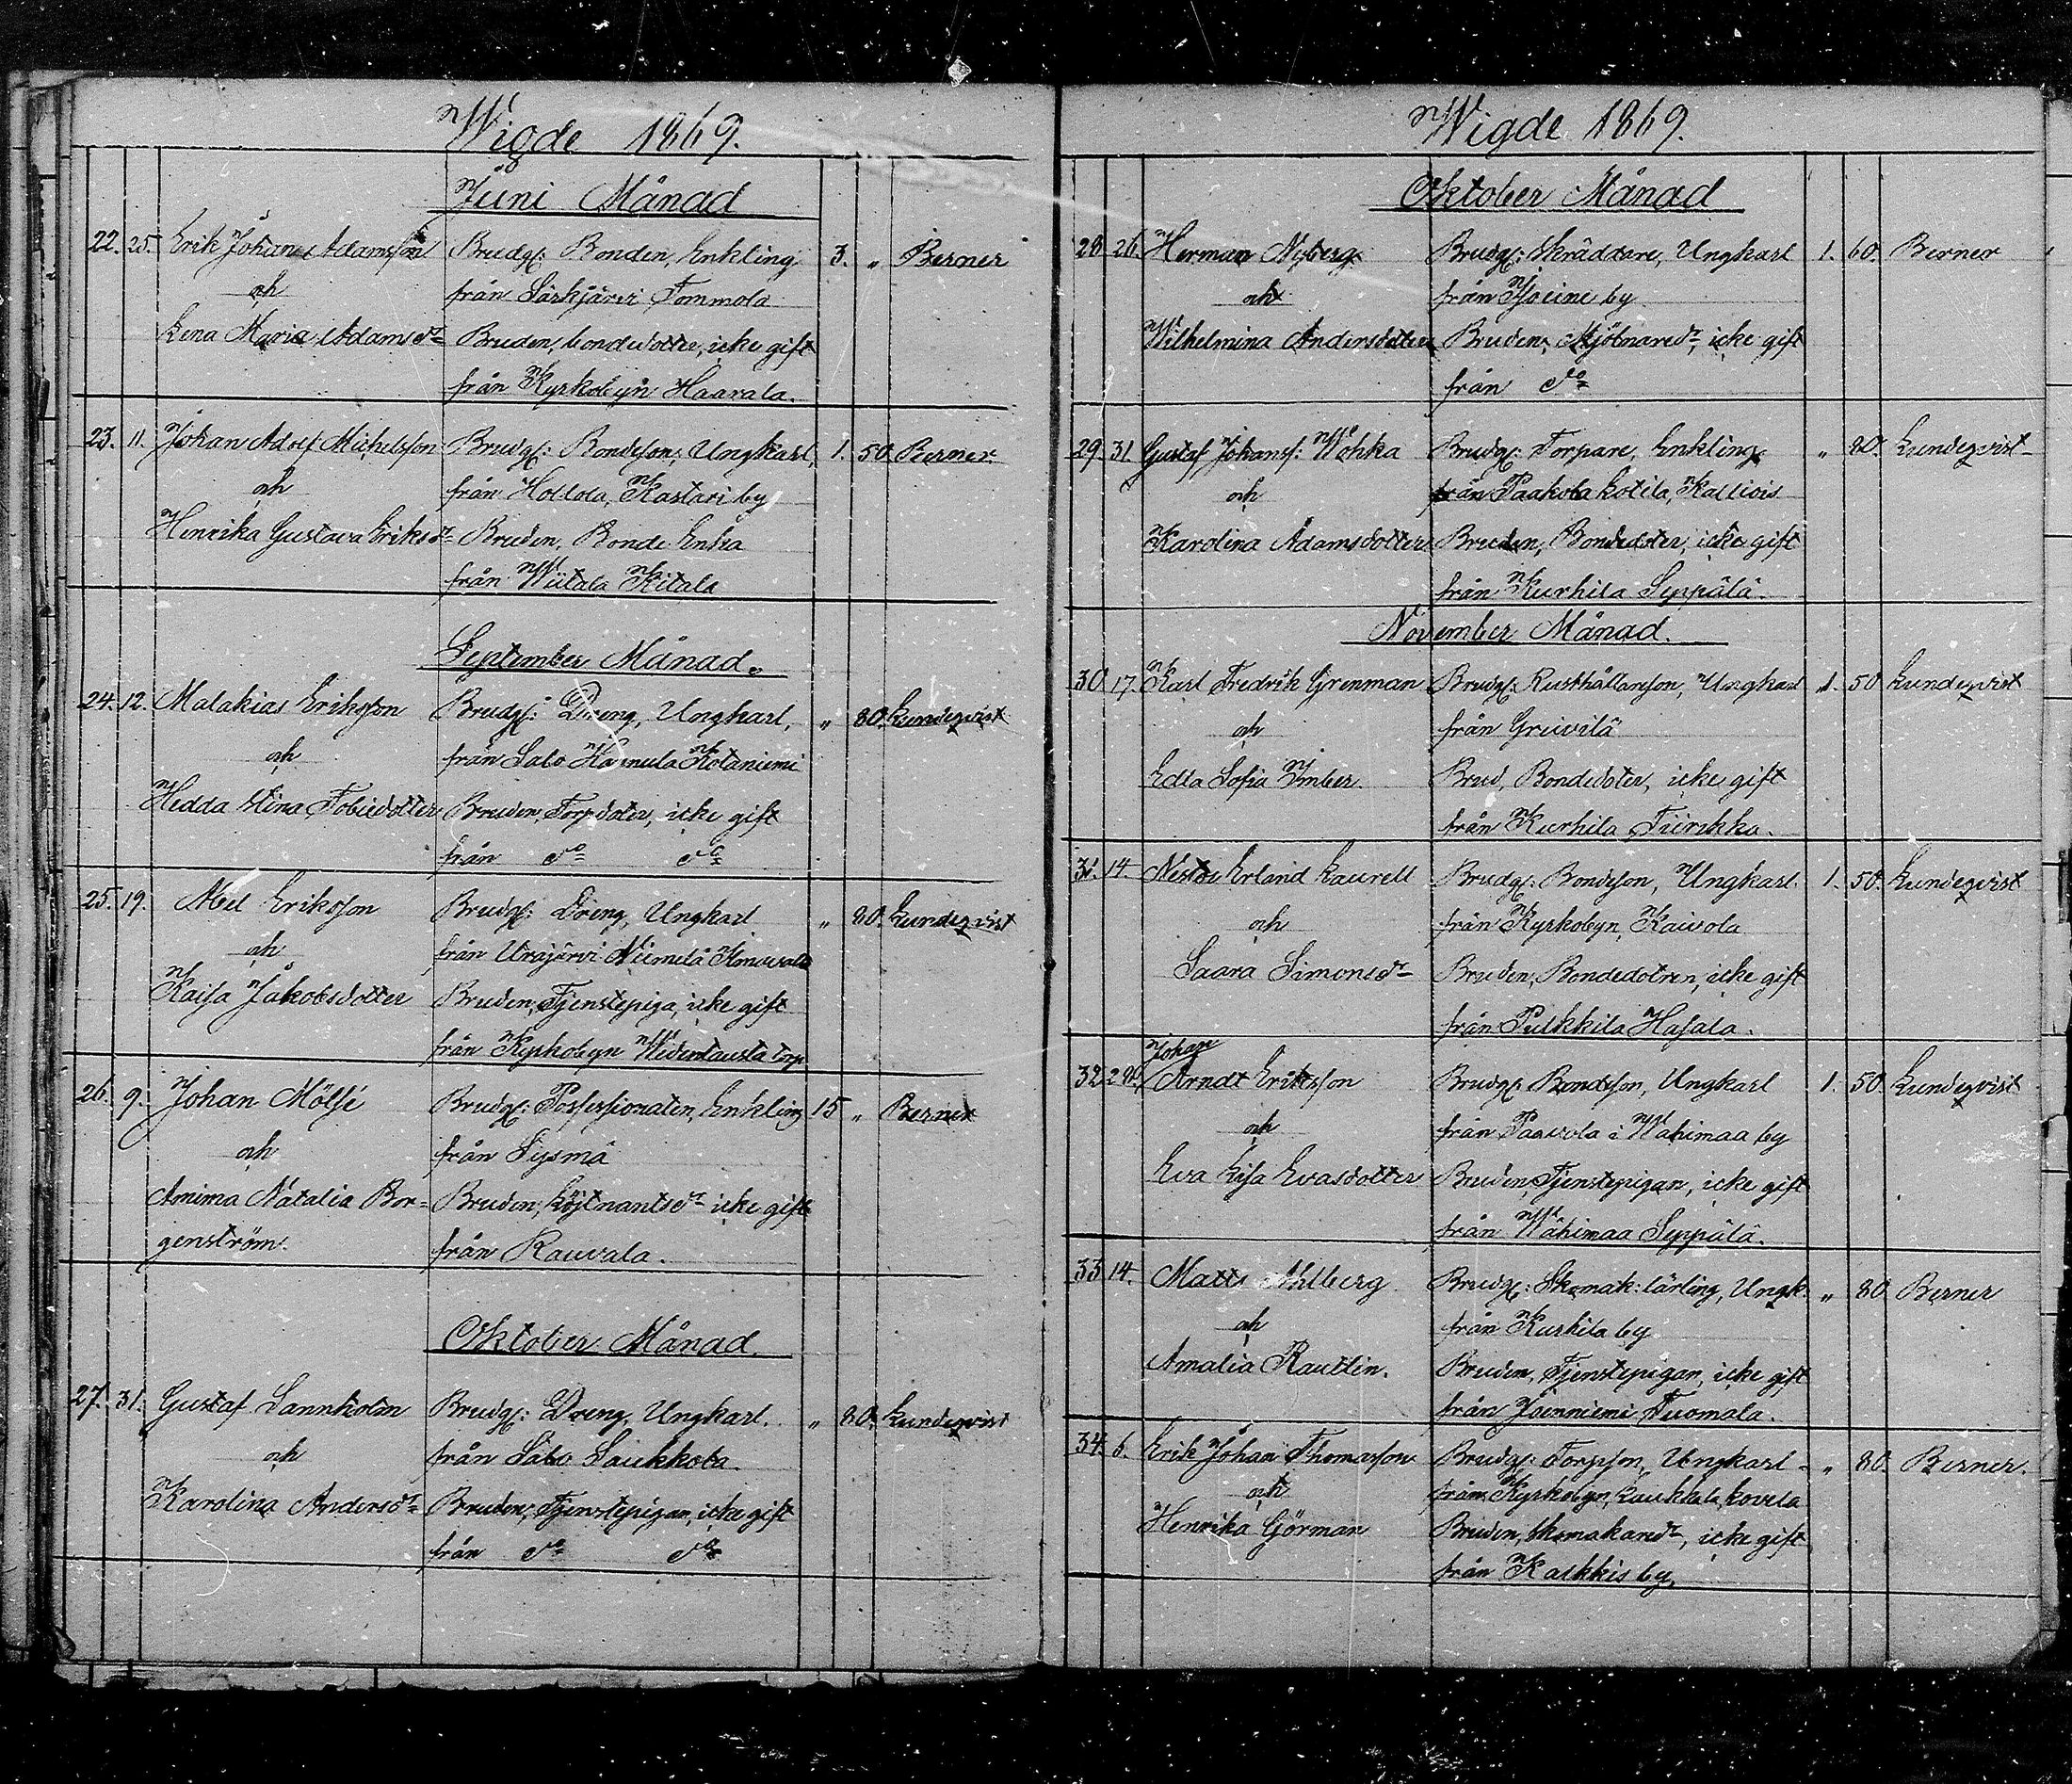 Wigde 1869.
Juni Månad
22. 25. Erik Johan Adamsson Brudg: Bonden, Enkling 3. „ Berner
och från Särkjärvi Tommola
Lena Maria Adamsdr Bruden, bondedotter, icke gift
från Kyrkobyn Haavala.
23. 11. Johan Adolf Michelsson Brudg: Bondeson, Ungkarl, 1. 50. Berner.
och från Hollola, Kastari by
Henrika Gustava Eriksdr Bruden, Bonde Enka
från Wiitala Kitala
September Månad.
24. 12. Malakias Eriksson Brudg: Dreng, Ungkarl, „ 80. Lundeqvist
och från Salo Hannula Kotaniemi
Hedda Stina Tobiedotter Bruden, Torpdoter, icke gift
från do do
25. 19. Abel Eriksson Brudg: Dreng, Ungkarl „ 80. Lundeqvist
och från Urajärvi Niemelä
Kaisa Jakobsdotter Bruden, Tjenstepiga, icke gift
från Kyrkobyn torp
26. 9. Johan Mölsä Brudg: Possessionaten, Enkling 15 „ Berner
och från Sysmä
Amima Natalia Bor- Bruden, Löjtnantsdr icke gift
genström. från Rauvala.
Oktober Månad.
27. 31. Gustaf Sannholm Brudg: Dreng, Ungkarl. „ 80. Lundeqvist
och från Salo Saukkola
Karolina Andersdr Bruden, Tjenstepigan, icke gift
från do do
Wigde 1869.
Oktober Månad
28 26. Herman Nyberg. Brudg: Skräddare, Ungkarl 1. 60. Berner
och från by
Wilhelmina Andersdotter Bruden, Mjölnaredr, icke gift
från do
29. 31. Gustaf Johanss: Wohka Brudg: Torpare, Enkling „ 80. Lundeqvist
och från Paakola Kotila, Kalliois
Karolina Adamsdotter Bruden, Bondedoter, icke gift
från Kurhila Seppälä.
November Månad.
30 17. Karl Fredrik Grenman Brudg: Rusthållarson, Ungkarl 1. 50 Lundeqvist
och från
Edla Sofia Imber. Brud, Bondedoter, icke gift
från Kurhila Tiirikka.
31. 14. Nestor Erland Laurell Brudg: Bondeson, Ungkarl. 1. 50. Lundeqvist
och från Kyrkobyn, Kaivola
Saara Simonsdr Bruden, Bondedotren, icke gift
från Pulkkila Hasala.
Johan
32 28. Arndt Eriksson Brudg: Bondeson, Ungkarl 1. 50. Lundeqvist
och från Paavola i Wähimaa by
Eva Lisa Evasdotter Bruden, Tjenstepigan, icke gift
från Wähimaa Seppälä.
33 14. Matts Ahlberg Brudg: Skomak: lärling, Ungk. „ 80 Berner
och från Kurhila by
Amalia Rautlin. Bruden, Tjenstepigan, icke gift
från Isenniemi Tuomala.
34. 6. Erik Johan Thomasson Brudg: Torpson, Ungkarl „ 80. Berner.
och från Kyrkobyn, Laukkala, Kovela
Henrika Görman Bruden, Skomakaredr, icke gift
från Kalkkis by